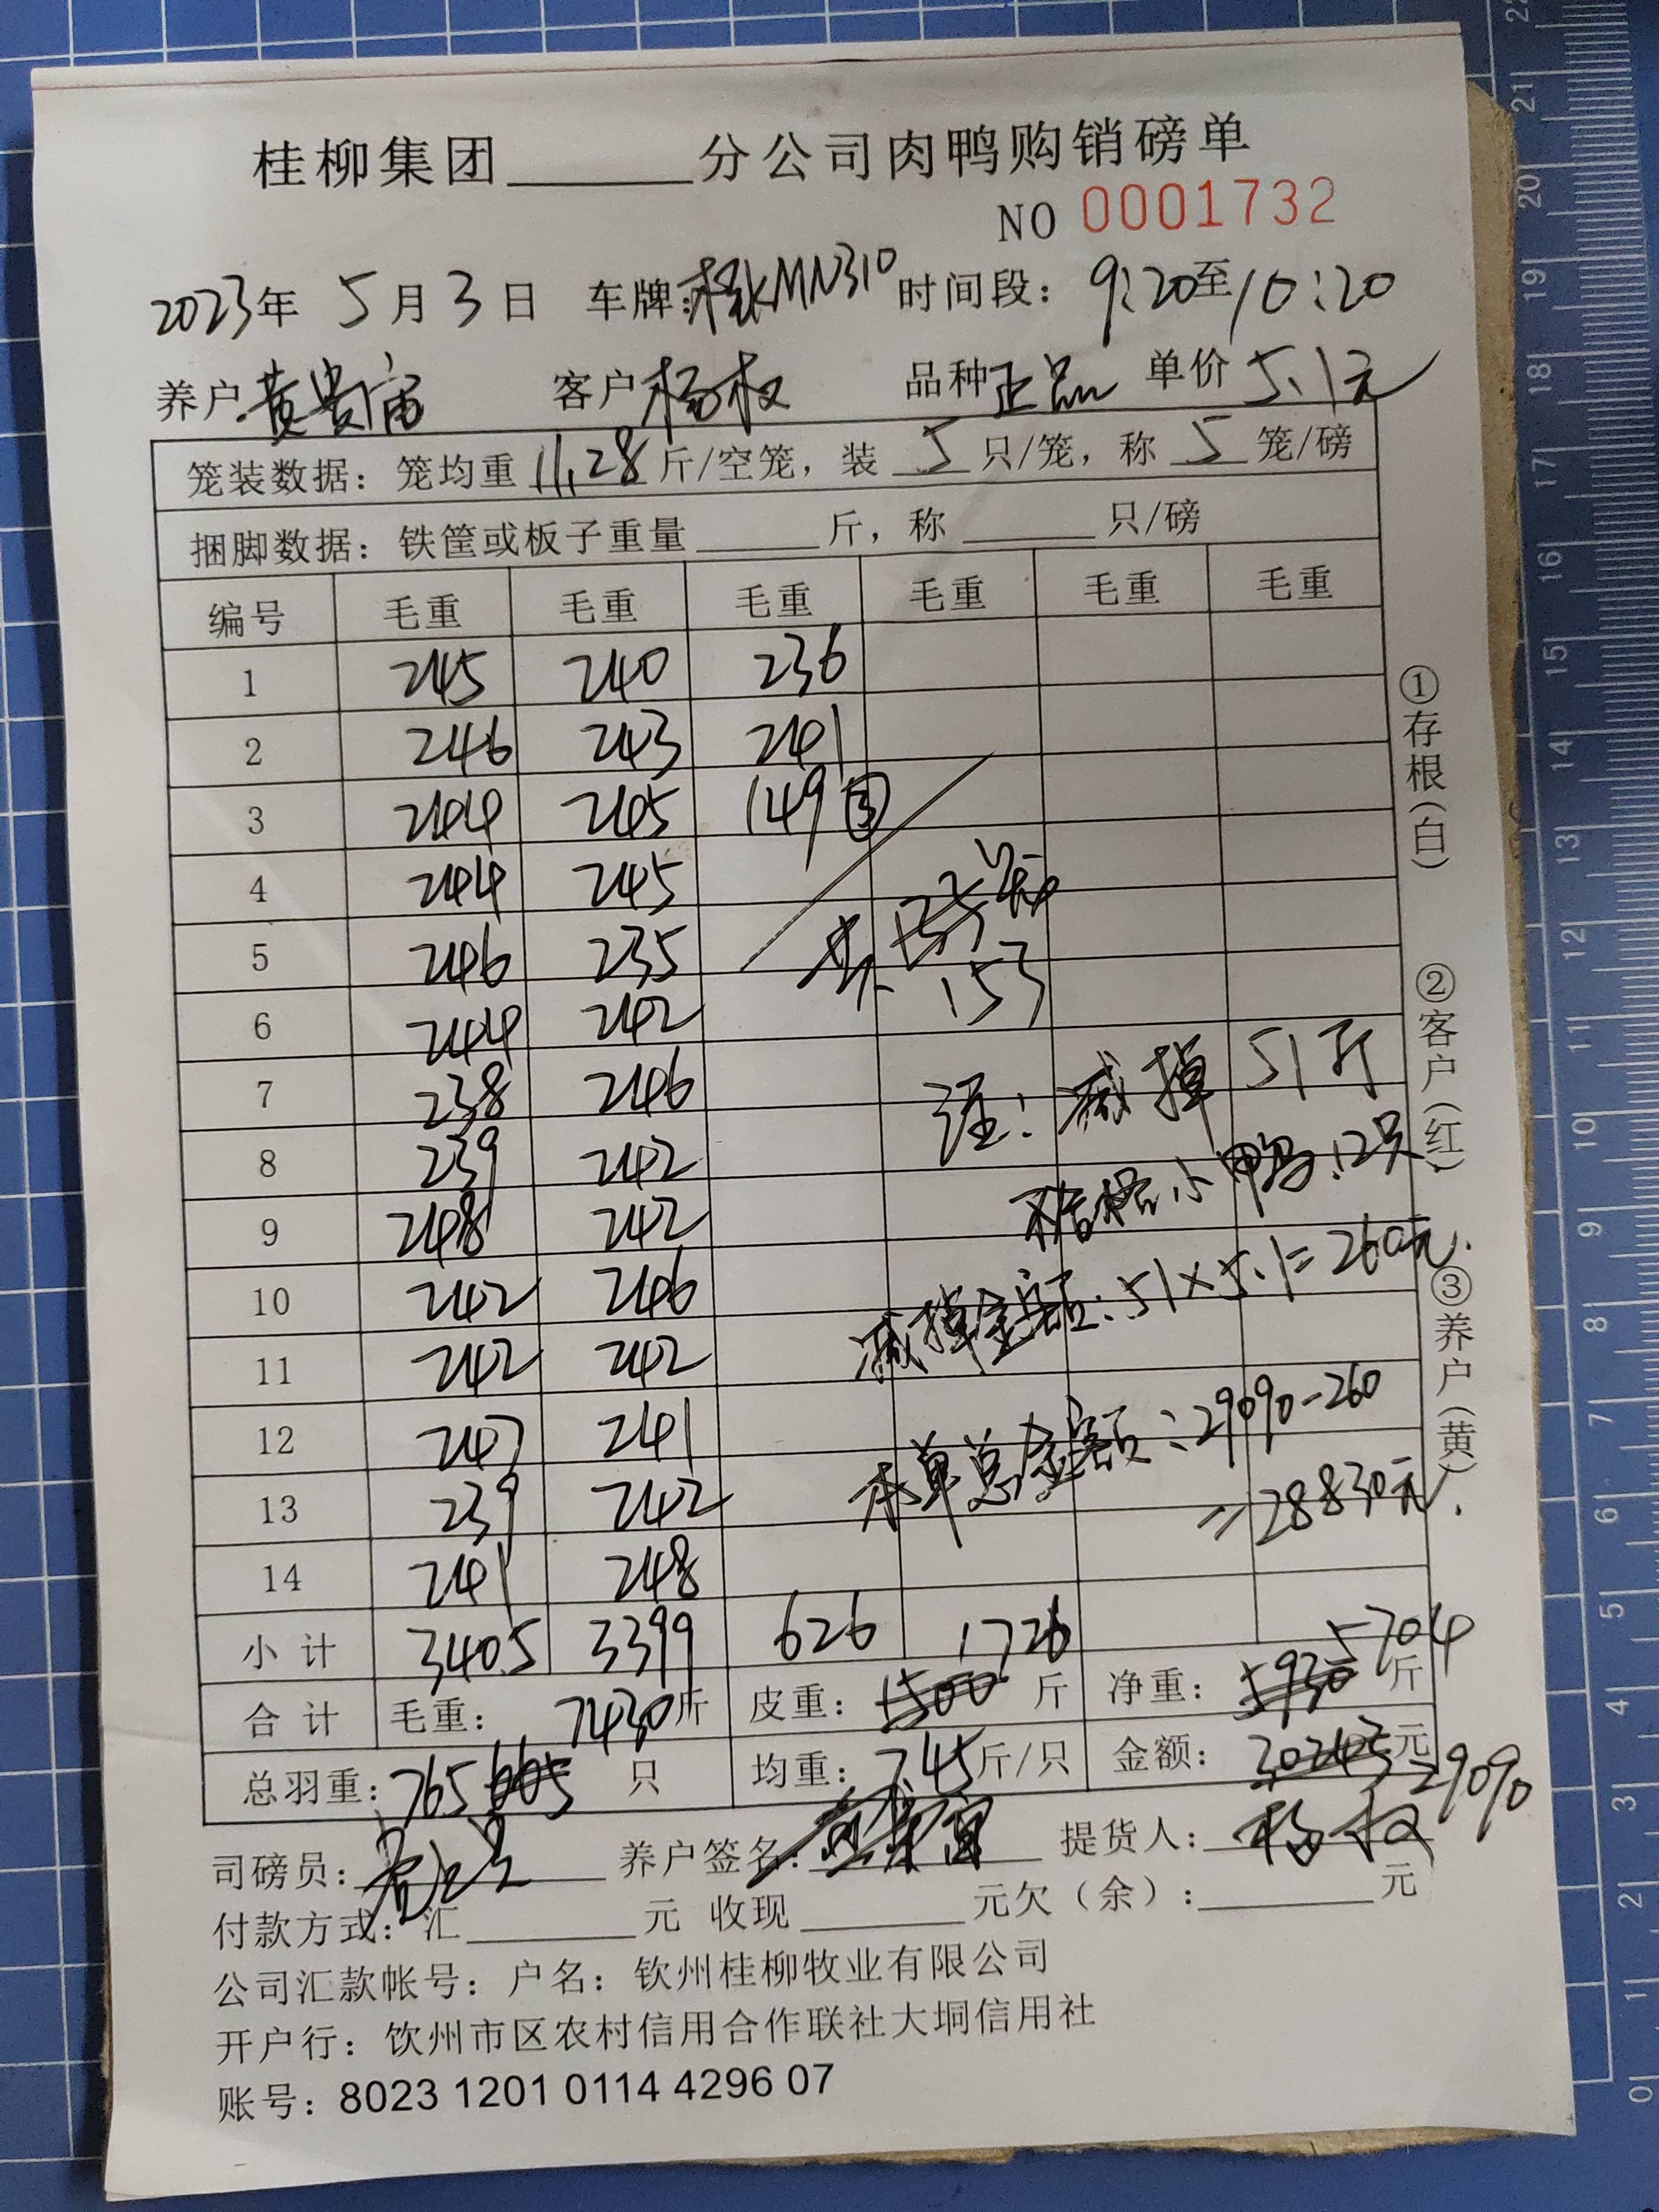 桂柳集团______分公司肉鸭购销磅单
NO 0001732
2023年 5月3日 车牌:桂KMN310 时间段: 9:20至10:20
养户 黄贵富 客户 杨权 品种 正品 单价 5.1元
笼装数据: 笼均重 11.28 斤/空笼, 装 5 只/笼, 称 5 笼/磅
捆脚数据: 铁筐或板子重量______斤, 称______只/磅
编号 毛重 毛重 毛重 毛重 毛重 毛重
1 245 240 236
2 246 243 241
3 244 245 149 ③
4 244 245
5 246 235
6 244 242
7 238 246
8 239 242
9 248 242
10 242 246
11 242 242
12 247 241
13 239 242
14 241 248
153
注: 减掉 51斤
不合格小鸭12只
减掉金额: 51×5.1=260元.
本单总金额: 29090-260
=28830元.
小计 3405 3399 626 1726
合计 毛重: 7430斤 皮重: 1500 斤 净重: 5930 5704 斤
总羽重: 765 665 只 均重: 7.45斤/只 金额: 30243元 29090
司磅员: 养户签名: 提货人: 杨权
付款方式: 汇______元 收现______元欠(余):______元
公司汇款帐号: 户名: 钦州桂柳牧业有限公司
开户行: 饮州市区农村信用合作联社大垌信用社
账号: 8023 1201 0114 4296 07
①存根(白) ②客户(红) ③养户(黄)
0 1 2 3 4 5 6 7 8 9 10 11 12 13 14 15 16 17 18 19 20 21 22